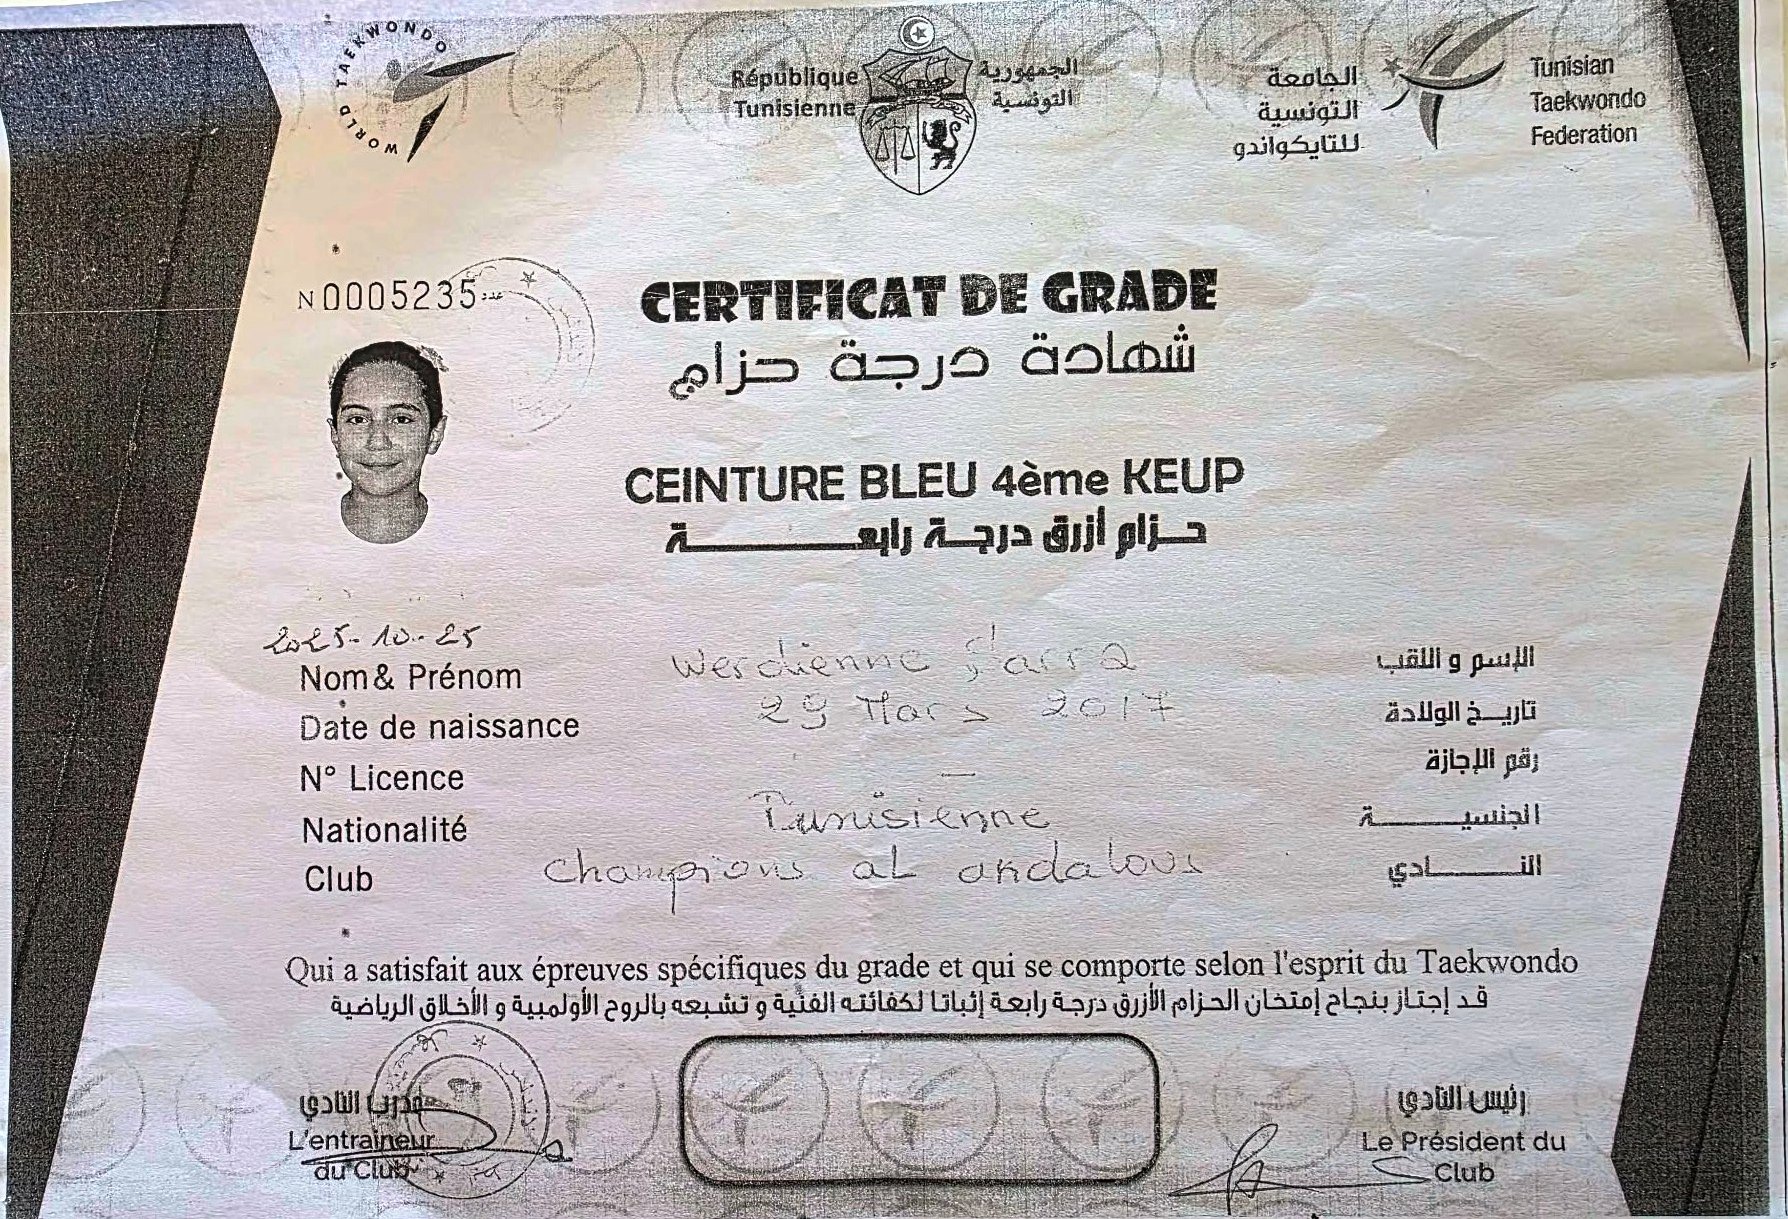 WORLD TAEKWONDO
République Tunisienne
الجمهورية التونسية
الجامعة التونسية للتايكواندو
Tunisian Taekwondo Federation
N 0005235 عدد
CERTIFICAT DE GRADE
شهادة درجة حزام
CEINTURE BLEU 4ème KEUP
حزام أزرق درجة رابعة
2025-10-25
Nom& Prénom Werdienne الإسم و اللقب
Date de naissance 29 Mars 2017 تاريخ الولادة
N° Licence — رقم الإجازة
Nationalité Tunisienne الجنسية
Club Champions al andalous النادي
Qui a satisfait aux épreuves spécifiques du grade et qui se comporte selon l'esprit du Taekwondo
قد إجتاز بنجاح إمتحان الحزام الأزرق درجة رابعة إثباتا لكفائته الفنية و تشبعه بالروح الأولمبية و الأخلاق الرياضية
مدرب النادي
L'entraineur
du Club
رئيس النادي
Le Président du
Club